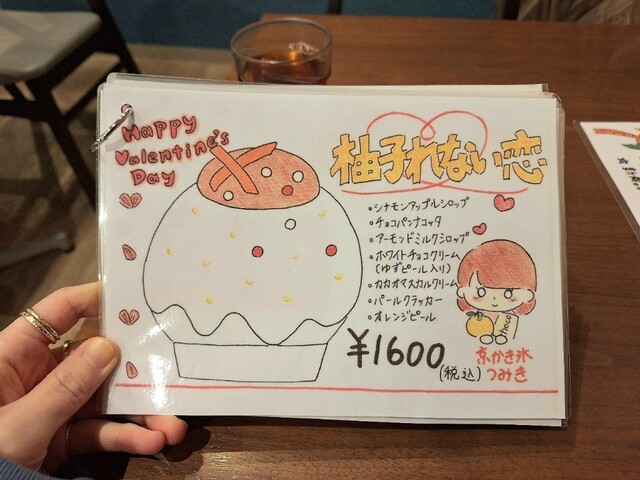 Happy
Valentine's
Day
柚子れない恋
•シナモンアップルシロップ
•チョコパンナコッタ
•アーモンドミルクシロップ
•ホワイトチョコクリーム
(ゆずピール入り)
•カカオマスカルクリーム
•パールクラッカー
•オレンジピール
¥1600
(税込)
choco
京かき氷
つみき